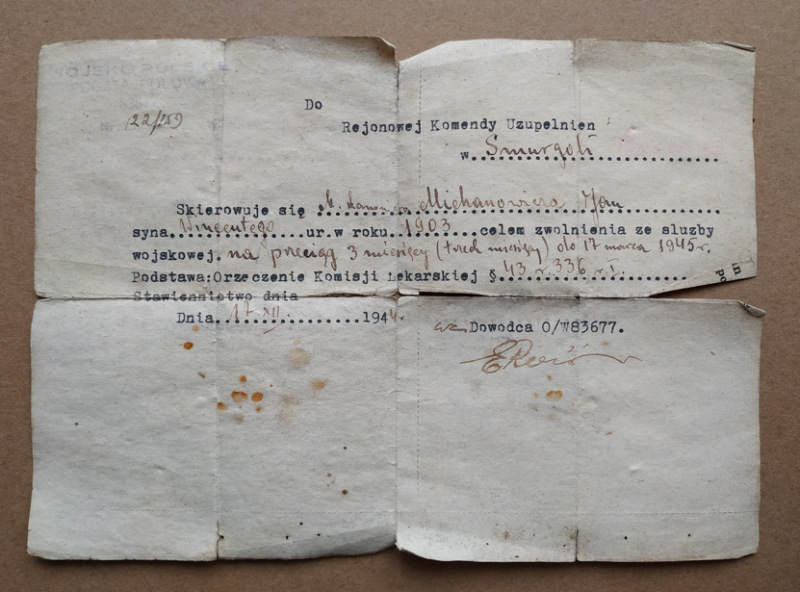 22/159
Do
Rejonowej Komendy Uzupelnien
w Smurgoli
Skierowuje się Michanowicza Jan
syna Wincentego ur.w roku 1903 celem zwolnienia ze sluzby
wojskowej. na przeciąg 3 miesięcy (trzech miesięcy) do 17 marca 1945 r.
Podstawa:Orzeczenie Komisji Lekarskiej § 43 r. 336 r. I.
Stawiennictwo dnia
Dnia 17 XII. 1944.
wz Dowodca O/W83677.